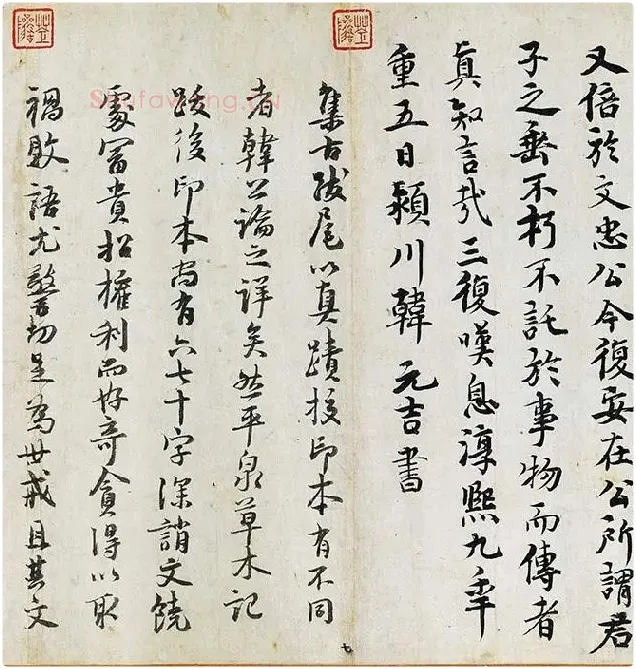 又倍於文忠公今復安在公所謂君
子之垂不朽不託於事物而傳者
真知言哉三復嘆息淳熙九年
重五日潁川韓元吉書
集古跋尾以真蹟校印本有不同
者韓公論之詳矣然平泉草木記
跋後印本尚有六七十字深誚文饒
處富貴招權利而好奇貪得以取
禍敗語尤警切足為世戒且其文
shufawang.cn